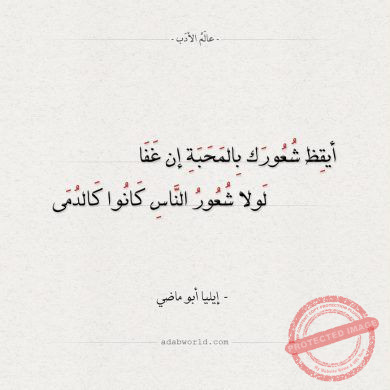 - عالَمُ الأدَب -
أيقِظ شُعُورَك بِالمَحَبَةِ إن غَفَا
لَولا شُعُورُ النَّاسِ كَانُوا كَالدُمَى
- إيليا أبو ماضي
adabworld.com
PROTECTED IMAGE